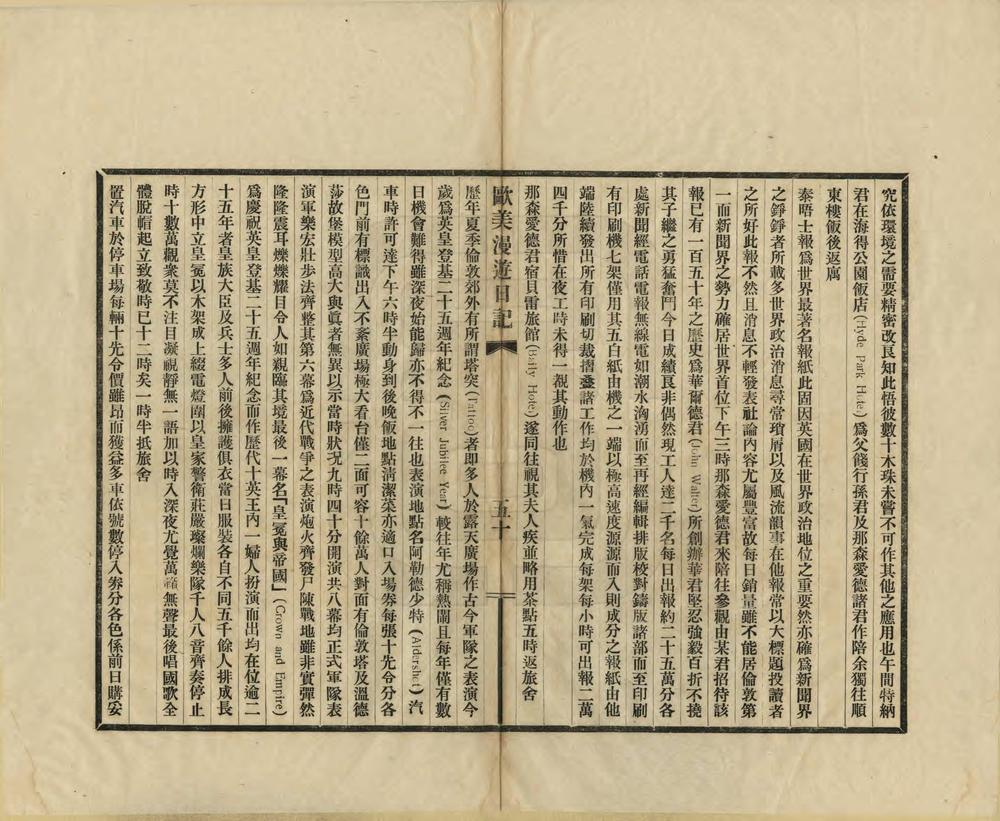 究依環境之需要精密改良知此悟彼數十木珠未嘗不可作其他之應用也午間特納
君在海得公園飯店(Hyde Park Hotel)爲父餞行孫君及那森愛德諸君作陪余獨往順
東樓飯後返寓
泰晤士報爲世界最著名報紙此固因英國在世界政治地位之重要然亦確爲新聞界
之錚錚者所載多世界政治消息尋常瑣屑以及風流韻事在他報常以大標題投讀者
之所好此報不然且消息不輕發表社論內容尤屬豐富故每日銷量雖不能居倫敦第
一而新聞界之勢力確居世界首位下午三時那森愛德君來陪往參觀由某君招待該
報已有一百五十年之歷史爲華爾德君(John Walter)所創辦華君堅忍強毅百折不撓
其子繼之勇猛奮鬥今日成績良非偶然現工人達二千名每日出報約二十五萬分各
處新聞經電話電報無線電如潮水洶湧而至再經編輯排版校對鑄版諸部而至印刷
有印刷機七架僅用其五白紙由機之一端以極高速度源源而入則成分之報紙由他
端陸續發出所有印刷切裁摺叠諸工作均於機內一氣完成每架每小時可出報二萬
四千分所惜在夜工時未得一覩其動作也
那森愛德君宿貝雷旅館(Baily Hotel)遂同往視其夫人疾並略用茶點五時返旅舍
歐美漫遊日記 五十
歷年夏季倫敦郊外有所謂塔突(Tattoo)者即多人於露天廣場作古今軍隊之表演今
歲爲英皇登基二十五週年紀念(Silver Jubilee Year)較往年尤稱熱鬧且每年僅有數
日機會難得雖深夜始能歸亦不得不一往也表演地點名阿勒德少特(Aldershot)汽
車時許可達下午六時半動身到後晚飯地點清潔菜亦適口入場劵每張十先令分各
色門前有標識出入不紊廣場極大看台僅二面可容十餘萬人對面有倫敦塔及溫德
莎故堡模型高大與眞者無異以示當時狀况九時四十分開演共八幕均正式軍隊表
演軍樂宏壯步法齊整其第六幕爲近代戰爭之表演炮火齊發尸陳戰地雖非實彈然
隆隆震耳爍爍耀目令人如親臨其境最後一幕名「皇冕與帝國」(Crown and Empire)
爲慶祝英皇登基二十五週年紀念而作歷代十英王內一婦人扮演而出均在位逾二
十五年者皇族大臣及兵士多人前後擁護俱衣當日服裝各自不同五千餘人排成長
方形中立皇冕以木架成上綴電燈圍以皇家警衛莊嚴璨爛樂隊千人八音齊奏停止
時十數萬觀衆莫不注目凝視靜無一語加以時入深夜尤覺萬籟無聲最後唱國歌全
體脫帽起立致敬時已十二時矣一時半抵旅舍
置汽車於停車場每輛十先令價雖昂而獲益多車依號數停入劵分各色係前日購妥